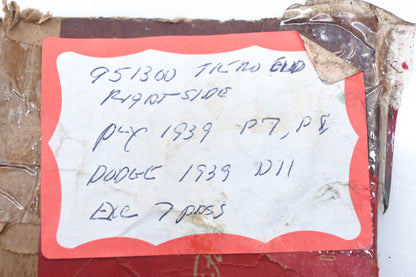 951300 TIE ROD END
RIGHT SIDE
PLY 1939 P7, P8
DODGE 1939 D11
EXC 7 PASS